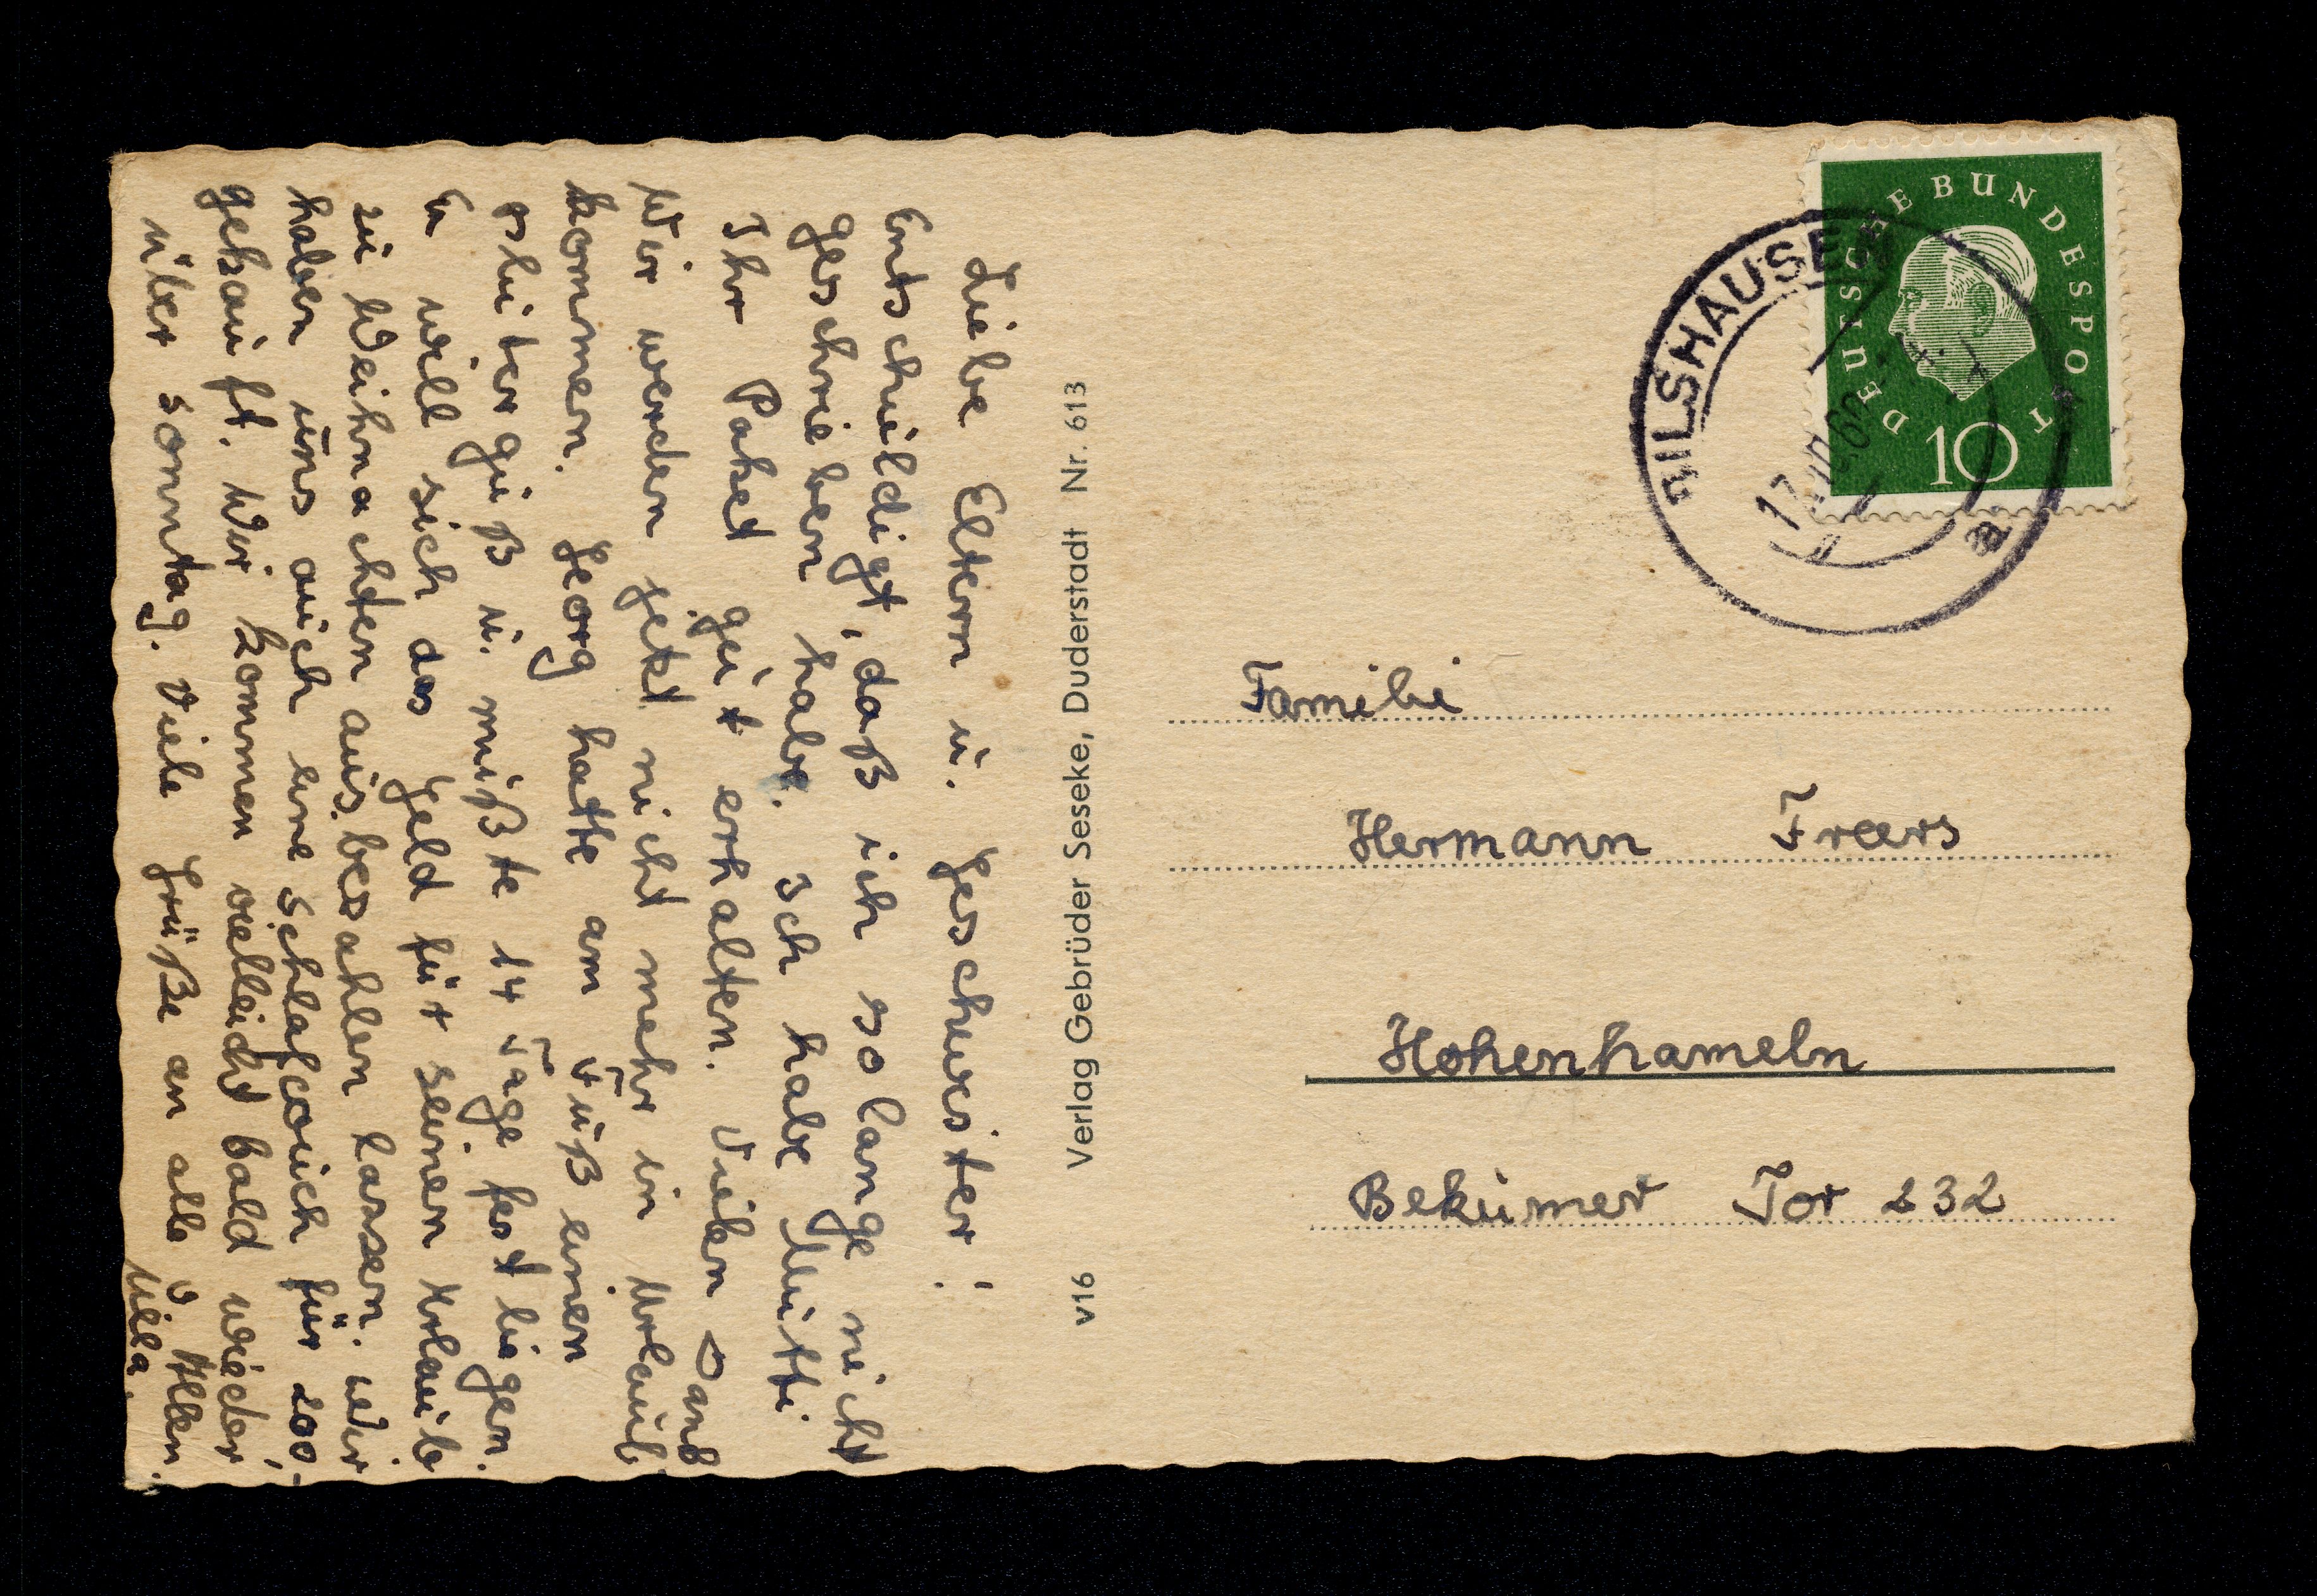 Liebe Eltern u. Geschwister!
Entschuldigt, daß ich so lange nicht
geschrieben habe. Ich habe Mutti
Ihr Paket gut erhalten. Vielen Dank
Wir werden jetzt nicht mehr in Urlaub
kommen. Georg hatte am Fuß einen
u. mußte 14 Tage fest liegen.
Er will sich das Geld für seinen Urlaub
zu Weihnachten ausbezahlen lassen. Wir
haben uns auch eine Schlafcouch für 200,-
gekauft. Wir kommen vielleicht bald wieder
über Sonntag. Viele Grüße an alle
v16 Verlag Gebrüder Seseke, Duderstadt Nr. 613
DEUTSCHE BUNDESPOST
10
BILSHAUSEN
a
Familie
Hermann
Hohenhameln
Bekumer Tor 232